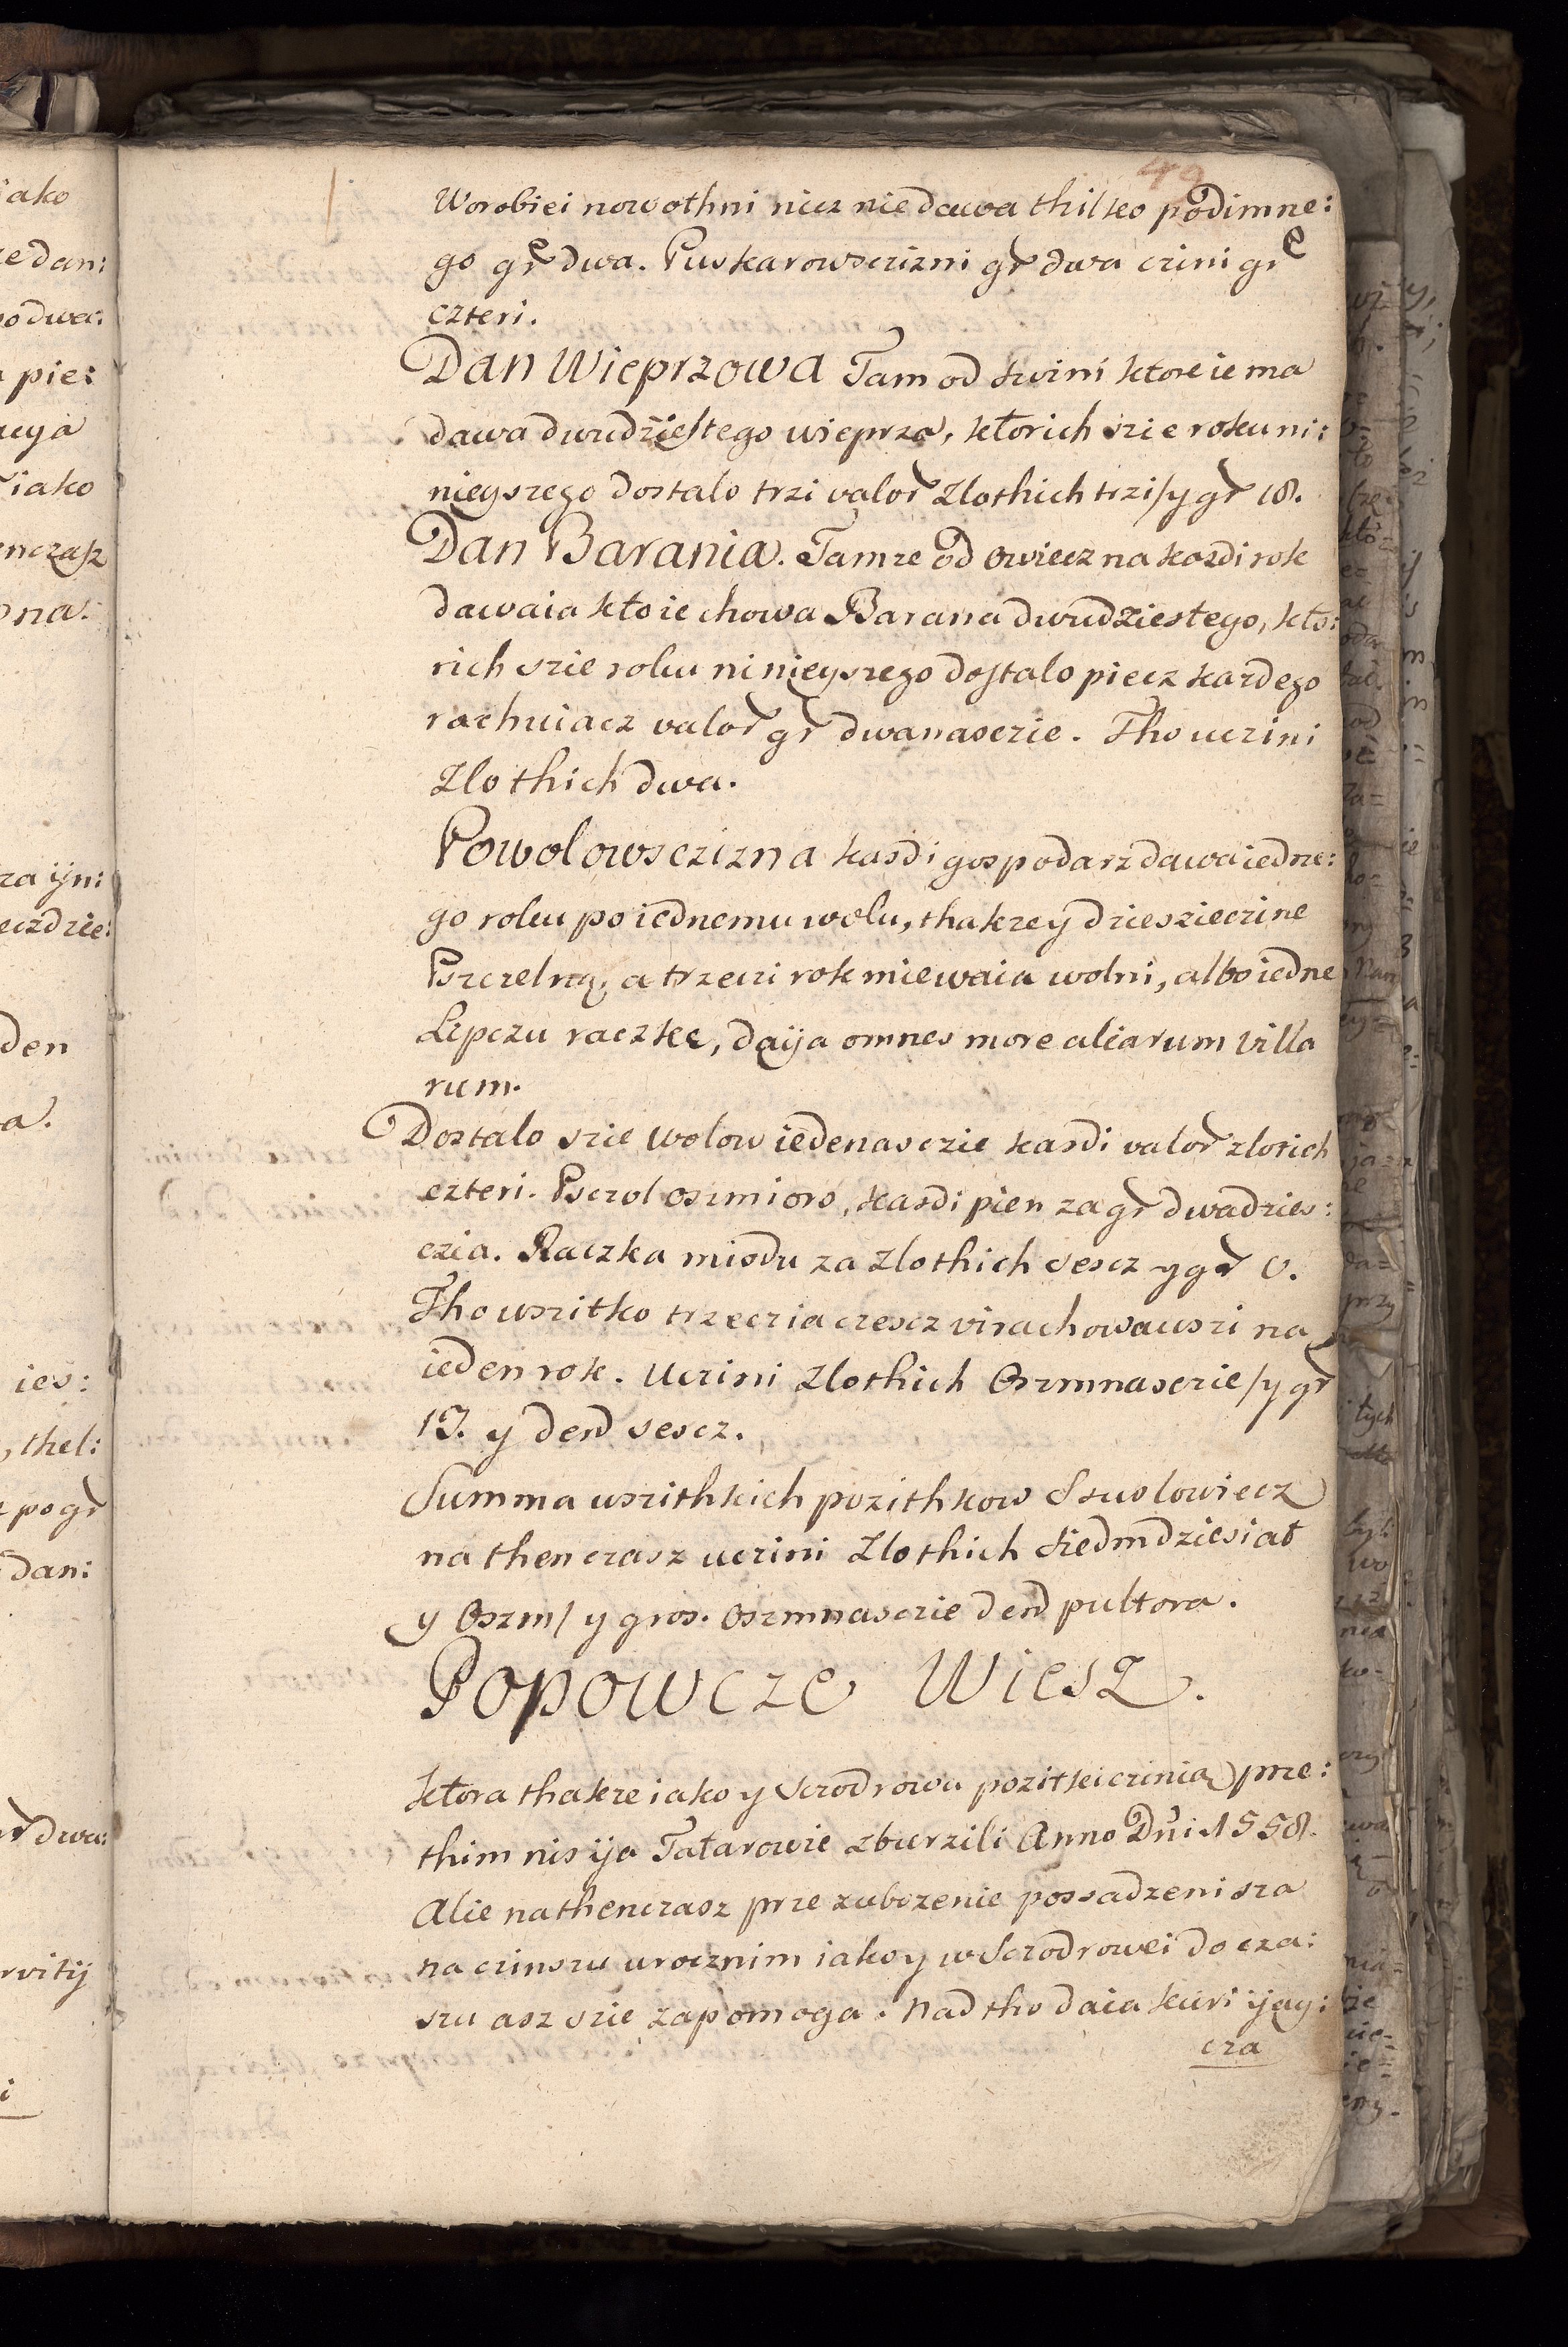 49
Worobiei nowothni nicz nie dawa thilko podimne:
go gr dwa. Puskarowsczizni gr dwa czini gr
czteri.
Dan Wieprzowa Tam od swini ktore ie ma
dawa dwudziestego wieprza, ktorich szie roku ni:
nieyszego dostalo trzi valor Zlothich trzi/y gr 18.
Dan Barania. Tamze od owiecz na kozdi rok
dawaia kto ie chowa Barana dwudziestego, kto:
rich szie roku ninieyszego dostalo piecz kazdego
rachuiacz valor gr dwanasczie. Tho uczini
Zlothich dwa.
Powolowsczizna kasdi gospodarz dawa iedne:
go roku po iednemu wolu, thakze y dzieszieczine
Pszczelną, a trzeczi rok miewaia wolni, albo iedne
Lipczu raczke, daija omnes more aliarum villa
rum.
Dostalo szie wolow iedenasczie kasdi valor zlotich
czteri. Psczol oszmioro, kasdi pien za gr dwadzies:
czia. Raczka miodu za Zlothich sescz y gr v.
Tho uszitko trzeczia czescz virachowauszi na
ieden rok. Uczini Zlothich Oszmnasczie/y gr
13. y den sescz.
Summa uszithkich pozithkow Swolowiecz
na then czasz uczini Zlothich Siedmdziesiat
y Oszm/ y gros. oszmnasczie den pultora.
Popowcze Wiesz.
Ktora thakze iako y Szrodrowa pozitki czinia prze:
thim nis ija Tatarowie zburzili Anno Dni 1558.
Alie nathenczasz prze zubozenie possadzeni sza
na czinszu urocznim iako y w Szrodrowei do cza:
szu asz szie zapomoga. Nad tho daia kuri ijay:
cza